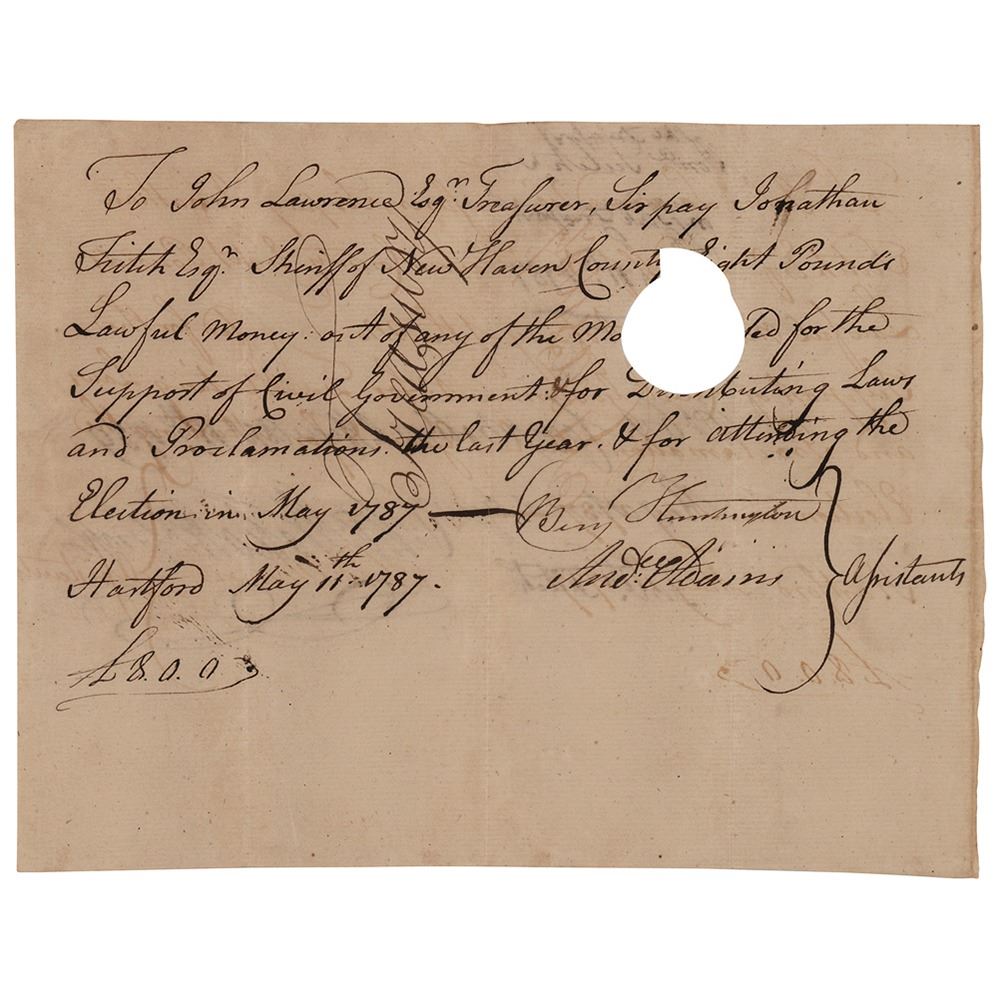 To John Lawrence Esqr. Treasurer, Sir pay Jonathan
Fitch Esqr. Sheriff of New Haven County Eight Pounds
Lawful Money: out of any of the Mo ted for the
Support of Civil Government: & for Distributing Laws
and Proclamations the last Year. & for attending the
Election in May 1787 — Benj Huntington
Hartford May 11th 1787. Andw. Adams } Assistants
£8.0.0